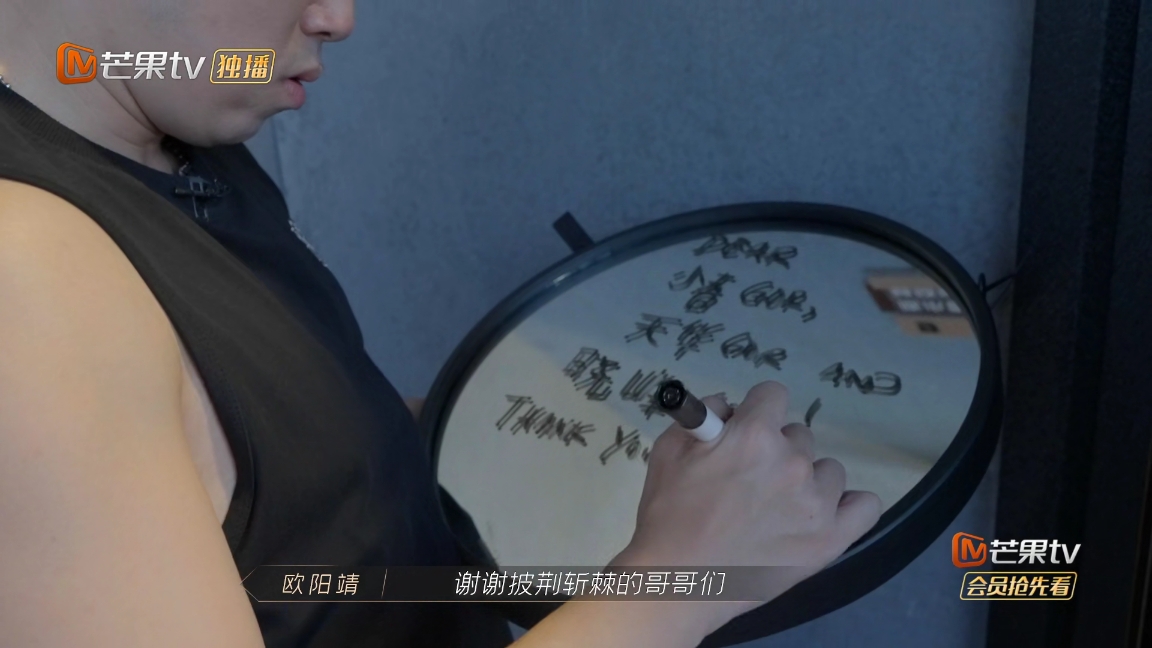 芒果tv 独播
DEAR
春 GOR,
天华 GOR AND
晓
THANK YOU
欧阳靖 谢谢披荆斩棘的哥哥们
芒果tv
会员抢先看